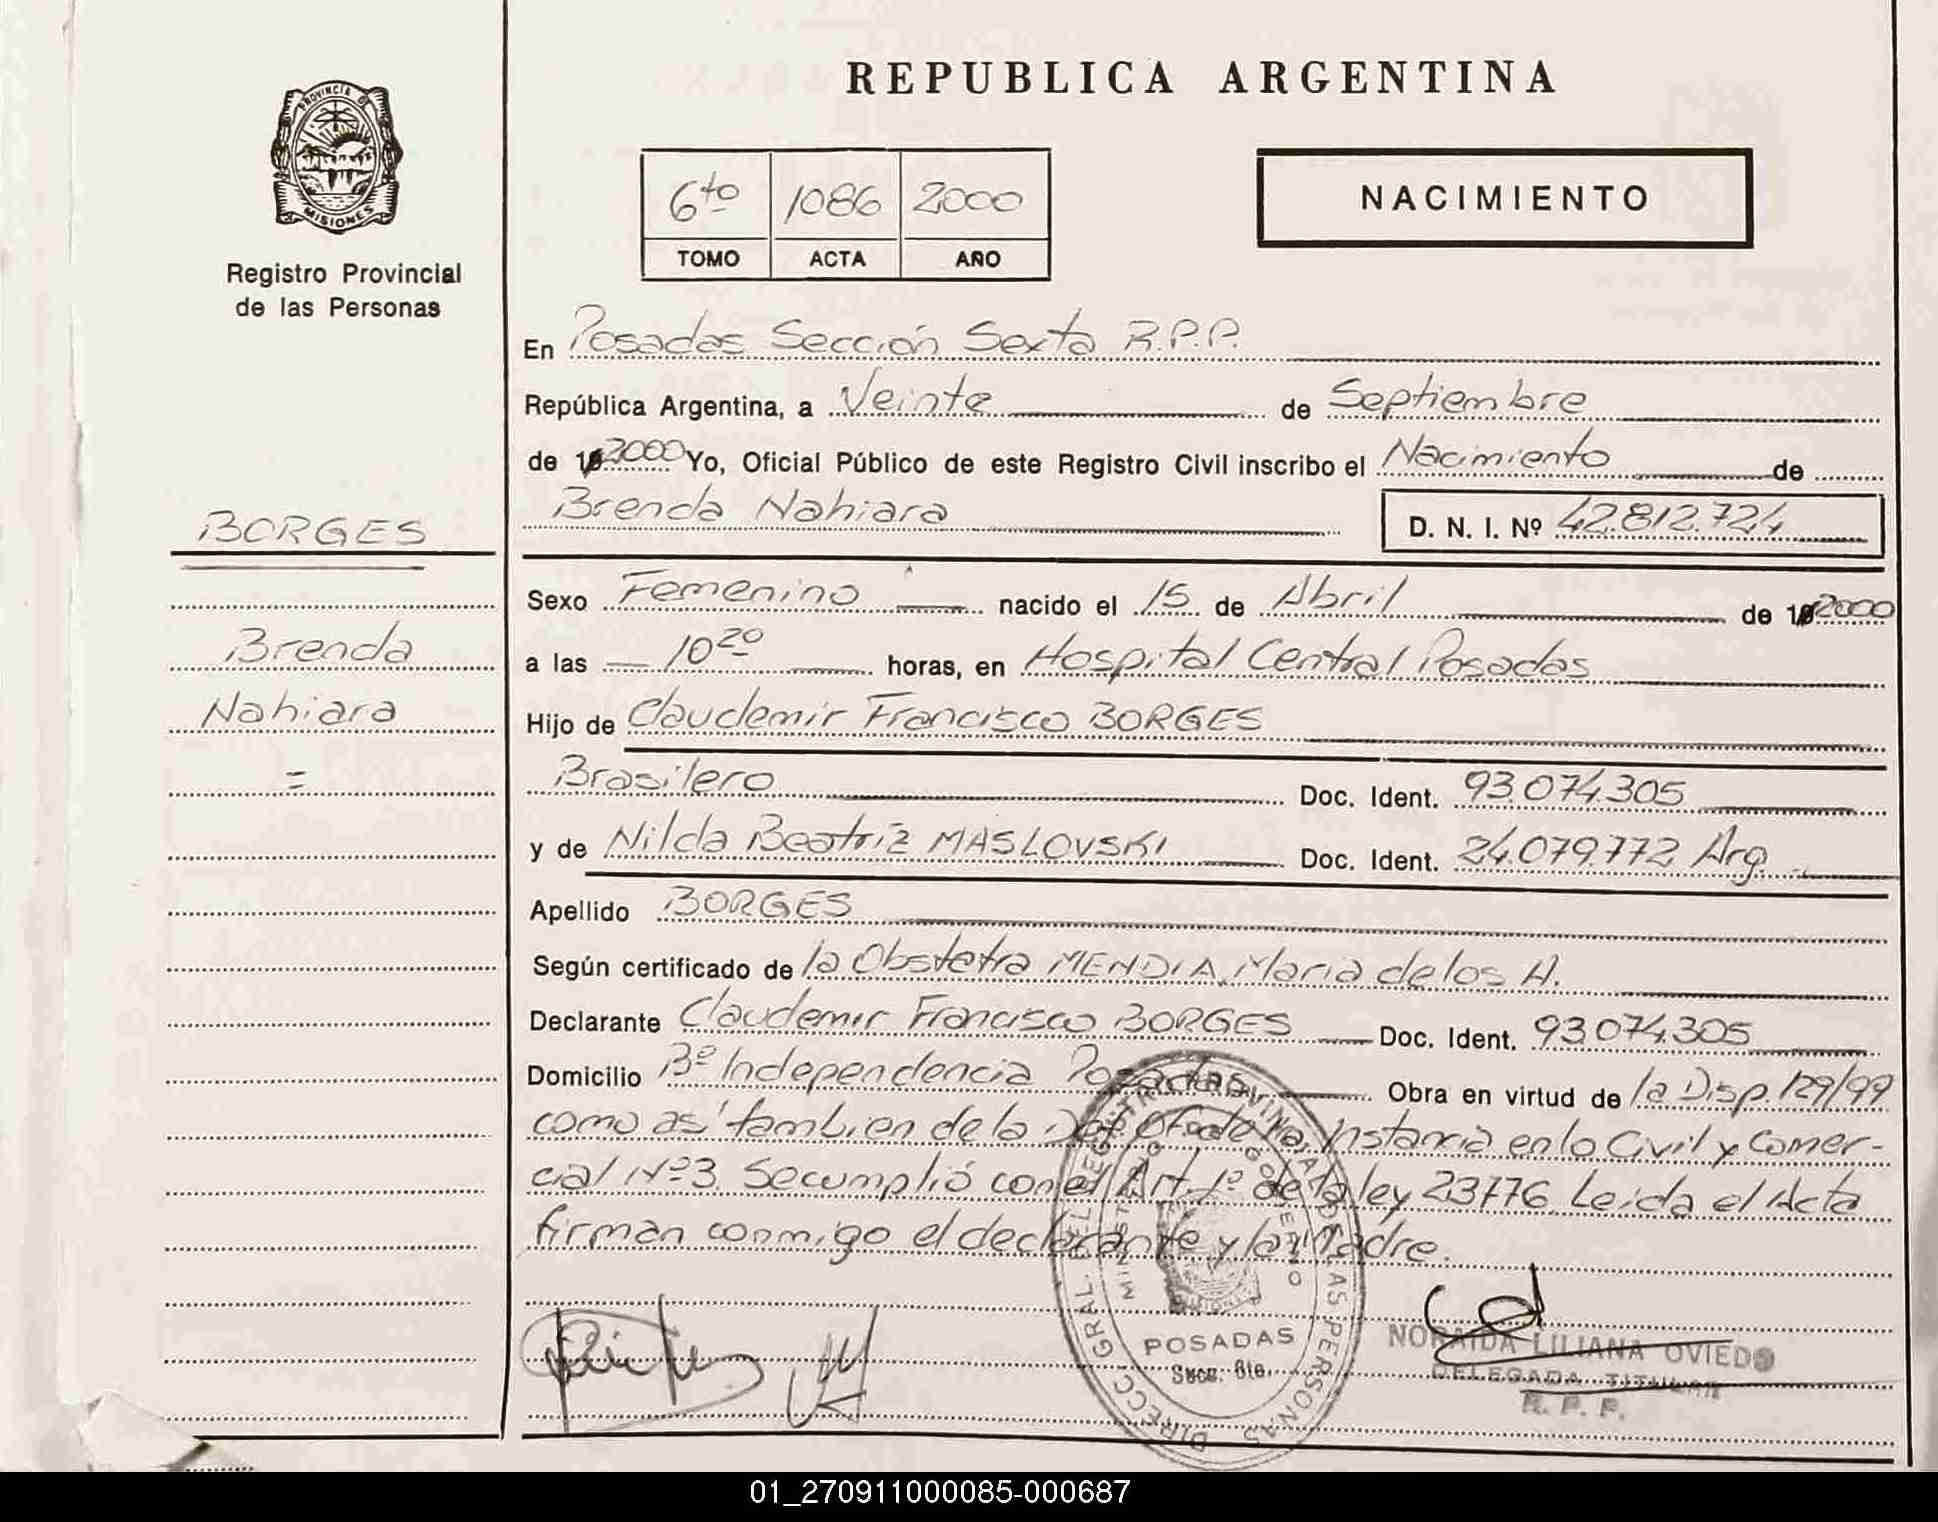 PROVINCIA DE
MISIONES
Registro Provincial
de las Personas
BORGES
Brenda
Nahiara
=
REPUBLICA ARGENTINA
6to 1086 2000
TOMO ACTA AÑO
NACIMIENTO
En Posadas Sección Sexta R.P.P.
República Argentina, a Veinte de Septiembre
de 19 2000 Yo, Oficial Público de este Registro Civil inscribo el Nacimiento de
Brenda Nahiara D. N. I. Nº 42.812.724
Sexo Femenino nacido el 15 de Abril de 19 2000
a las 10 20 horas, en Hospital Central Posadas
Hijo de Claudemir Francisco BORGES
Brasilero Doc. Ident. 93.074.305
y de Nilda Beatriz MASLOVSKI Doc. Ident. 24.079.772 Arg.
Apellido BORGES
Según certificado de la Obstetra MENDIA, Maria de los A.
Declarante Claudemir Francisco BORGES Doc. Ident. 93.074.305
Domicilio Bº Independencia Posadas Obra en virtud de la Disp. 129/99
como asi tambien de la Def. Of. de 1a. Instancia en lo Civil y Comer-
cial Nº 3. Se cumplió con el Art. 1º de la ley 23776 Leida el Acta
firman conmigo el declarante y la Madre.
DIRECC GRAL. DEL REGISTRO PROVINCIAL DE LAS PERSONAS
MINISTERIO DE GOBIERNO
POSADAS
Secc. 6ta.
NORAIDA LILIANA OVIEDO
DELEGADA TITULAR
R. P. P.
01_270911000085-000687